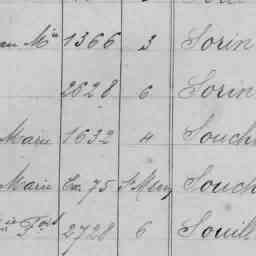 an Mie 1366 3 Sorin
2628 6 Sorin
Marie 1632 4 Souch
Marie Ex 75 St Méry Souch
2728 6 Souill